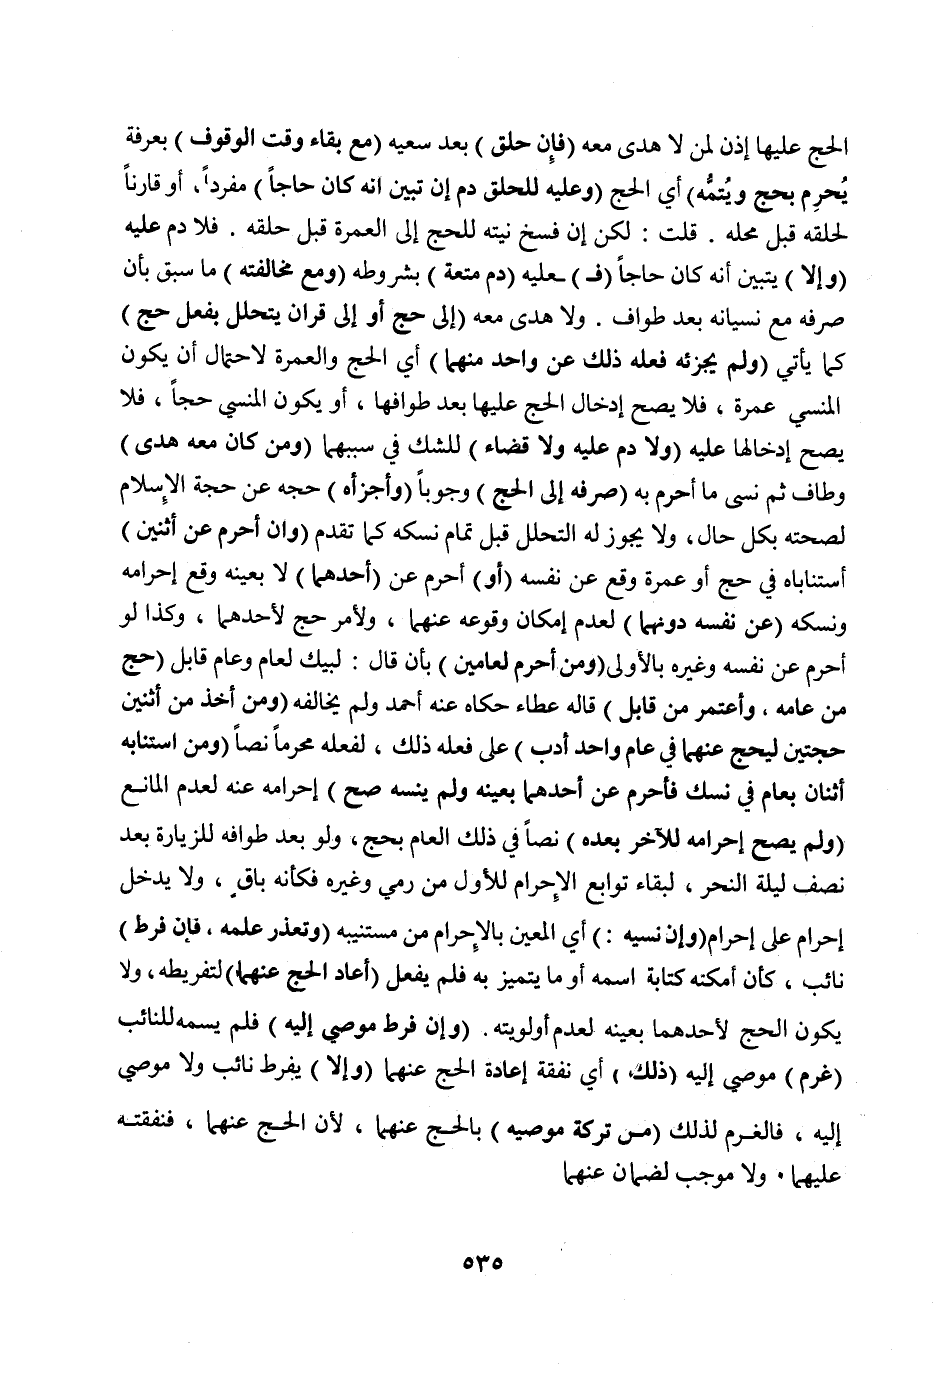 الحج عليها إذن لمن لا هدى معه (فإن حلق) بعد سعيه (مع بقاء وقت الوقوف) بعرفة
يُحرِم بحج ويُتمُّه) أي الحج (وعليه للحلق دم إن تبين انه كان حاجاً) مفرداً، أو قارناً
لحلقه قبل محله . قلت : لكن إن فسخ نيته للحج إلى العمرة قبل حلقه . فلا دم عليه
(وإلا) يتبين أنه كان حاجاً (فـ) ـعليه (دم متعة) بشروطه (ومع مخالفته) ما سبق بأن
صرفه مع نسيانه بعد طواف . ولا هدى معه (إلى حج أو إلى قران يتحلل بفعل حج)
كما يأتي (ولم يجزئه فعله ذلك عن واحد منهما) أي الحج والعمرة لاحتمال أن يكون
المنسي عمرة ، فلا يصح إدخال الحج عليها بعد طوافها ، أو يكون المنسي حجاً ، فلا
يصح إدخالها عليه (ولا دم عليه ولا قضاء) للشك في سببهما (ومن كان معه هدى)
وطاف ثم نسى ما أحرم به (صرفه إلى الحج) وجوباً (وأجزأه) حجه عن حجة الإسلام
لصحته بكل حال، ولا يجوز له التحلل قبل تمام نسكه كما تقدم (وان أحرم عن أثنين)
أستناباه في حج أو عمرة وقع عن نفسه (أو) أحرم عن (أحدهما) لا بعينه وقع إحرامه
ونسكه (عن نفسه دونهما) لعدم إمكان وقوعه عنهما ، ولأمر حج لأحدهما ، وكذا لو
أحرم عن نفسه وغيره بالأولى (ومن أحرم لعامين) بأن قال : لبيك لعام وعام قابل (حج
من عامه ، وأعتمر من قابل) قاله عطاء حكاه عنه أحمد ولم يخالفه (ومن أخذ من أثنين
حجتين ليحج عنهما في عام واحد أدب) على فعله ذلك ، لفعله محرماً نصاً (ومن استنابه
أثنان بعام في نسك فأحرم عن أحدهما بعينه ولم ينسه صح) إحرامه عنه لعدم المانع
(ولم يصح إحرامه للآخر بعده) نصاً في ذلك العام بحج، ولو بعد طوافه للزيارة بعد
نصف ليلة النحر ، لبقاء توابع الإحرام للأول من رمي وغيره فكأنه باقٍ ، ولا يدخل
إحرام على إحرام (وإن نسيه :) أي المعين بالإحرام من مستنيبه (وتعذر علمه ، فإن فرط)
نائب ، كأن أمكنه كتابة اسمه أو ما يتميز به فلم يفعل (أعاد الحج عنهما) لتفريطه، ولا
يكون الحج لأحدهما بعينه لعدم أولويته. (وإن فرط موصي إليه) فلم يسمه للنائب
(غرم) موصي إليه (ذلك) أي نفقة إعادة الحج عنهما (وإلا) يفرط نائب ولا موصي
إليه ، فالغرم لذلك (من تركة موصيه) بالحج عنهما ، لأن الحج عنهما ، فنفقته
عليهما . ولا موجب لضمان عنهما
٥٣٥